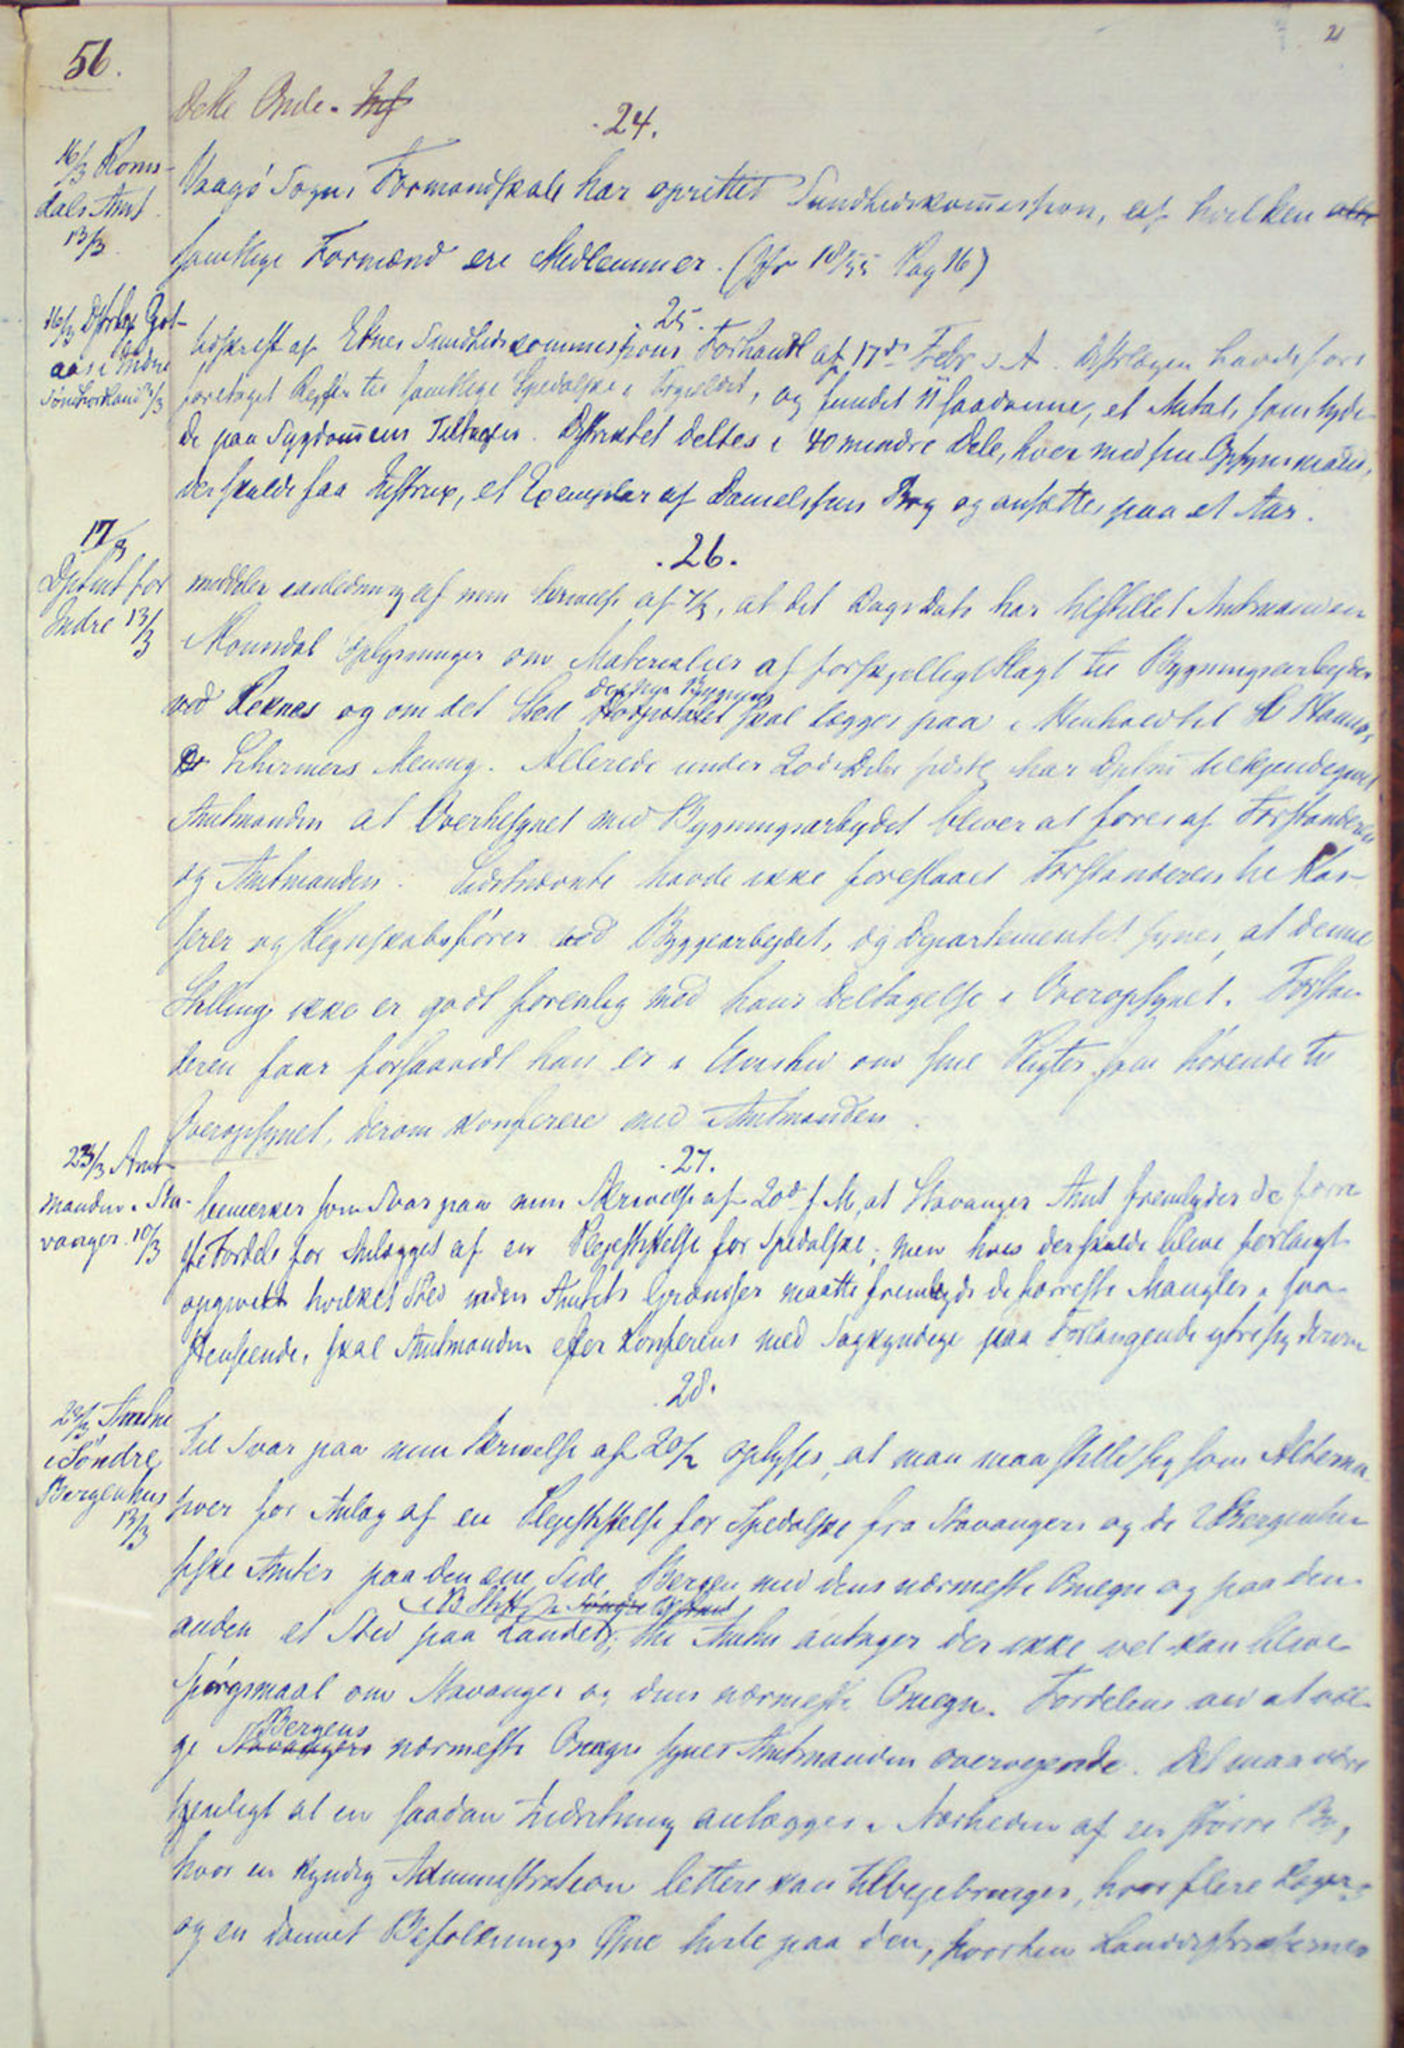 56.
21
dette Onde.
24.
16/3 Roms-
dals Amt
13/3
Vaagø Sogns Formandskab har oprettet Sundhedskommission, af hvilken alle
samtlige Formænd ere Medlemmer. (Jfr 18/55 Pag 16)
25.
16/3 Distrlæge
aas i Indre
Søndhordland
Udskrift af Etnes Sundhedskommissions Forhandl af 17de Febr d. A. Distrlægen havde fore
foretaget Reiser til samtlige Spedalske i Prgjeldet, og fundet 11 saadanne, et Antal, som tyde-
de paa Sygdommens Tiltagen. Distriktet deltes i 40 mindre Dele, hver med sin Opsynsmand,
der skulde faa Instrux, et Exemplar af Danielsens Bog og ansættes paa et Aar.
26.
17/3
Dptmt for
Indre 13/3
meddeler i anledning af min Skrivelse af 7/3, at det Dags Dato har tilstillet Amtmanden
i Romsdal Oplysninger om Materialier af forskjelligt Slagt til Bygningsarbeidet
den nye Bygning
ved Reknes og om det Sted Hospitalet skal lægges paa i Henhold til
Schirmers Mening. Allerede under 20de Debr sidstl har Dptmt tilkjendegivet
Amtmanden at Overtilsynet med Bygningsarbeidet bliver at føres af Forstanderen
og Amtmanden. Sidstnævnte havde ikke foreslaaet Forstanderen til Kas-
serer og Regnskabsfører ved Byggearbejdet, og Departementet synes, at denne
Stilling ikke er godt forenlig med hans Deltagelse i Overopsynet. Forstan
deren faar forsaavidt han er i Uvished om sine Pligter som hørende til
Overopsynet, derom konferere med Amtmanden.
27.
23/3 Amt-
manden i Sta-
vanger 10/3
bemærker som Svar paa min Skrivelse af 20de f. M, at Stavanger Amt frembyder de færre
ste Fordele for Anlægget af en Pleiestiftelse for Spedalske; men hvis der skulde blive forlangt
opgivet hvilket Sted inden Amtets Grændser maatte frembyde de færreste Mangler i saa
Henseende, skal Amtmanden efter Konferens med Sagkyndige paa Forlangende ytre sig derom
28.
23/3 Amtm
i Søndre
Bergenhus
13/3
Til Svar paa min Skrivelse af 20/2 oplyses, at man maa stille sig som Alterna
tiver for Anlag af en Pleiestiftelse for Spedalske fra Stavangers og de 2 Bergenhu
siske Amter paa den ene Side Bergen med dens nærmeste Omegn og paa den
i B Stift
anden et Sted paa Landet; thi Amtm antager der ikke vel kan blive
Spørgsmaal om Stavanger og dens nærmeste Omegn. Fordelene ved at væl
Bergens
ge Stavangers nærmeste Omegn synes Amtmanden overvejende. Det maa være
tjenligt at en saadan Indretning anlægges i Nærheden af en større By,
hvor en kyndig Administration lettere kan tilvejebringes, hvor flere Læger
og en dannet Befolknings Øine hvile paa den, hvorhen Landdistrikternes